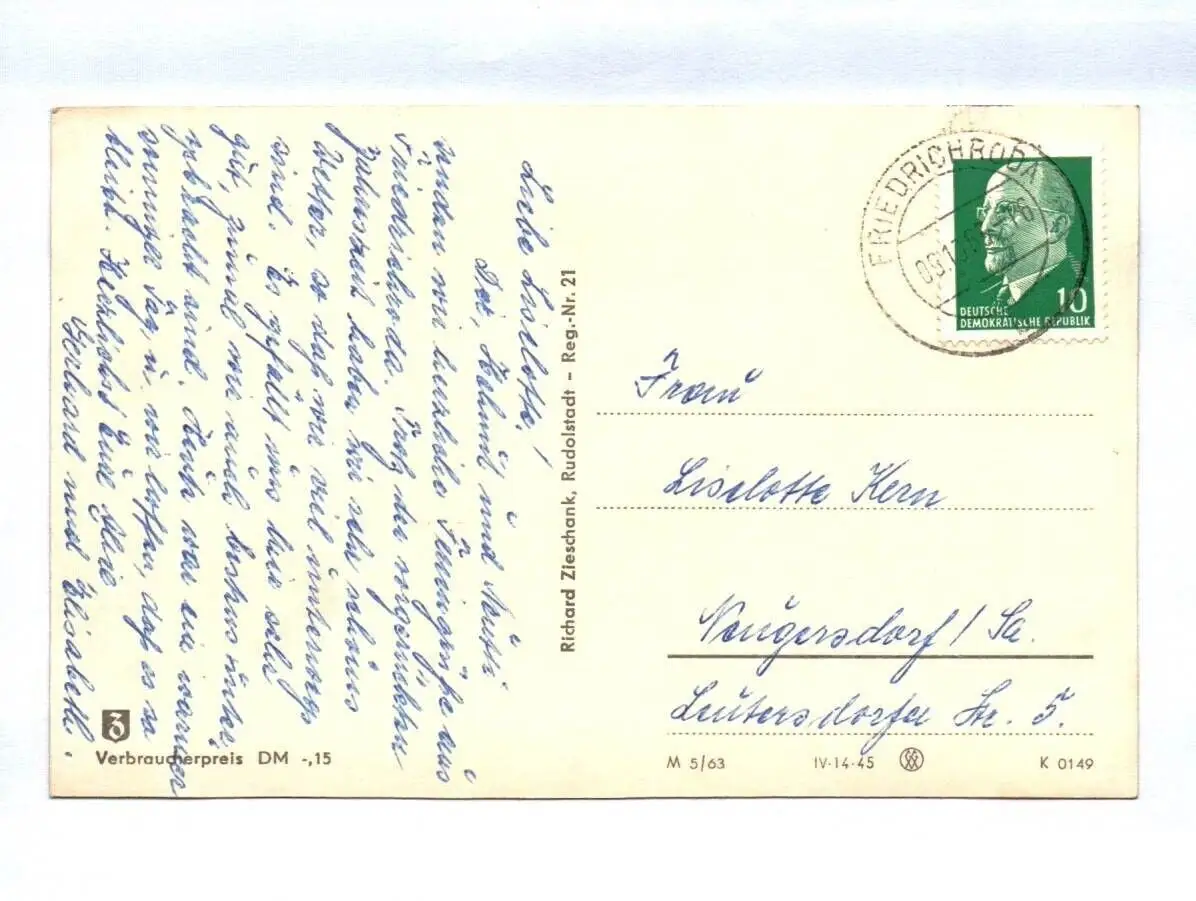 Liebe Liselotte!
Dir, Helmut und Mutti
senden wir herzliche Feriengrüße aus
Friedrichroda. Trotz der vorgerückten
Jahreszeit haben wir sehr schönes
Wetter, so daß wir viel unterwegs
sind. Es gefällt uns hier sehr
gut, zumal wir auch bestens unter-
gebracht sind. Heute war ein warmer
sonniger Tag u. wir hoffen, daß es so
bleibt. Herzlichst Eure
Gerhard und Elisabeth.
Verbraucherpreis DM -,15
Richard Zieschank, Rudolstadt – Reg.-Nr. 21
FRIEDRICHRODA
10
DEUTSCHE
DEMOKRATISCHE REPUBLIK
Frau
Liselotte Kern
Neugersdorf / Sa.
Leutersdorfer Str. 5.
M 5/63 IV-14-45 K 0149